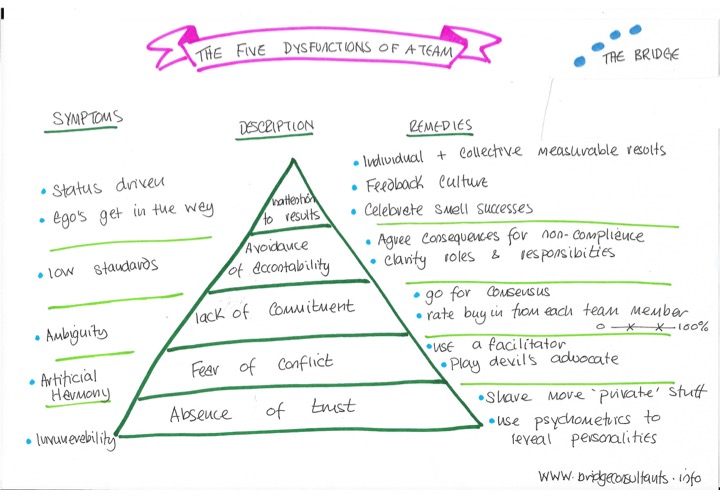 THE FIVE DYSFUNCTIONS OF A TEAM
THE BRIDGE
SYMPTOMS
• Status driven
• Ego's get in the way
• low standards
• Ambiguity
• Artificial
Harmony
• Invunerability
DESCRIPTION
Inattention
to results
Avoidance
of accountability
lack of Commitment
Fear of Conflict
Absence of trust
REMEDIES
• Individual + collective measurable results
• Feedback culture
• Celebrate small successes
• Agree consequences for non-compliance
• clarity roles & responsibities
• go for consensus
• rate buy in from each team member
0 x x 100%
• use a facilitator
• Play devil's advocate
• Share more 'private' stuff
• use psychometrics to
reveal personalities
www.bridgeconsultants.info